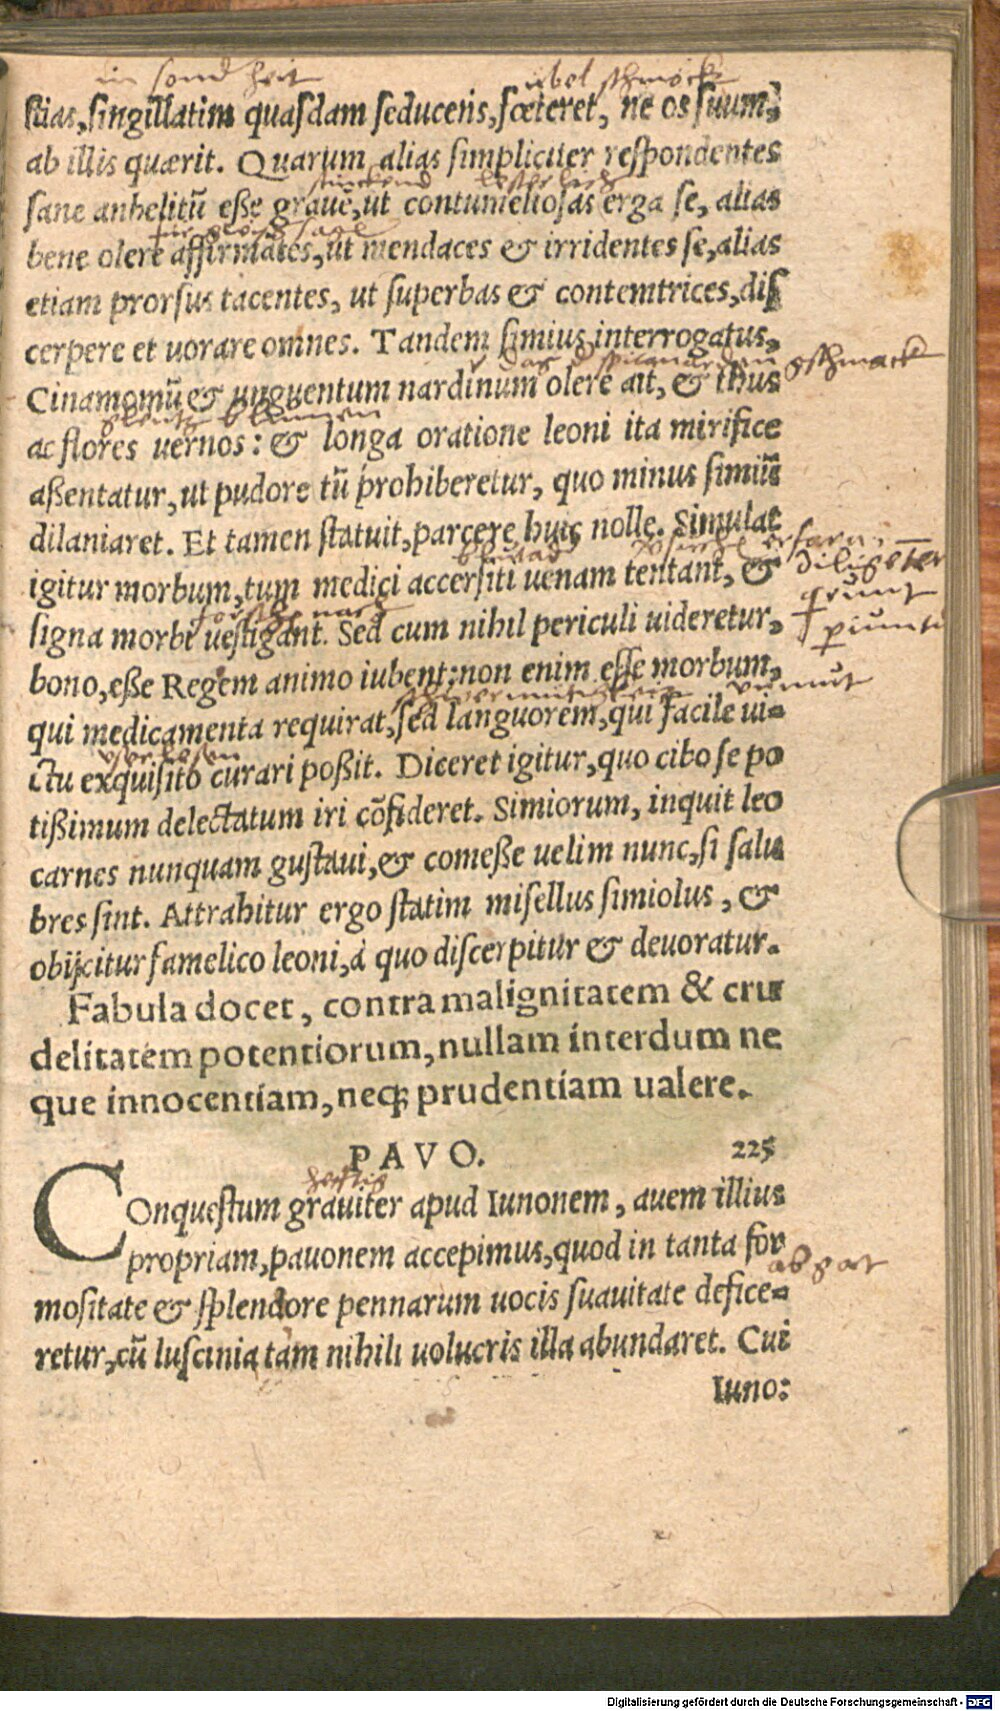 in sond heit   übel schmöckt
stias, singillatim quasdam seducens, fœteret, ne os suum,
ab illis quærit. Quarum alias simpliciter respondentes
stinckend
sane anhelitũ esse graue, ut contumeliosas erga se, alias
bene olere affirmãtes, ut mendaces & irridentes se, alias
etiam prorsus tacentes, ut superbas & contemtrices, dis
cerpere et uorare omnes. Tandem simius interrogatus,
gschmack
Cinamomũ & unguentum nardinum olere ait, & thus
blůmen
ac flores uernos: & longa oratione leoni ita mirifice
assentatur, ut pudore tũ prohiberetur, quo minus simiũ
dilaniaret. Et tamen statuit, parcere huic nolle. Simulac
igitur morbum, tum medici accersiti uenam tentant, &
signa morbi uestigant. Sed cum nihil periculi uideretur,
bono, esse Regem animo iubent: non enim esse morbum,
qui medicamenta requirat, sed languorem, qui facile ui-
ctu exquisito curari possit. Diceret igitur, quo cibo se po
tissimum delectatum iri cõfideret. Simiorum, inquit leo
carnes nunquam gustaui, & comesse uelim nunc, si salu
bres sint. Attrahitur ergo statim misellus simiolus, &
obijcitur famelico leoni, à quo discerpitur & deuoratur.
Fabula docet, contra malignitatem & cru
delitatem potentiorum, nullam interdum ne
que innocentiam, neq; prudentiam ualere.
PAVO. 225
heftig
COnquestum grauiter apud Iunonem, auem illius
propriam, pauonem accepimus, quod in tanta for
mositate & splendore pennarum uocis suauitate defice-
retur, cũ luscinia tam nihili uolucris illa abundaret. Cui
Iuno:
Digitalisierung gefördert durch die Deutsche Forschungsgemeinschaft - DFG